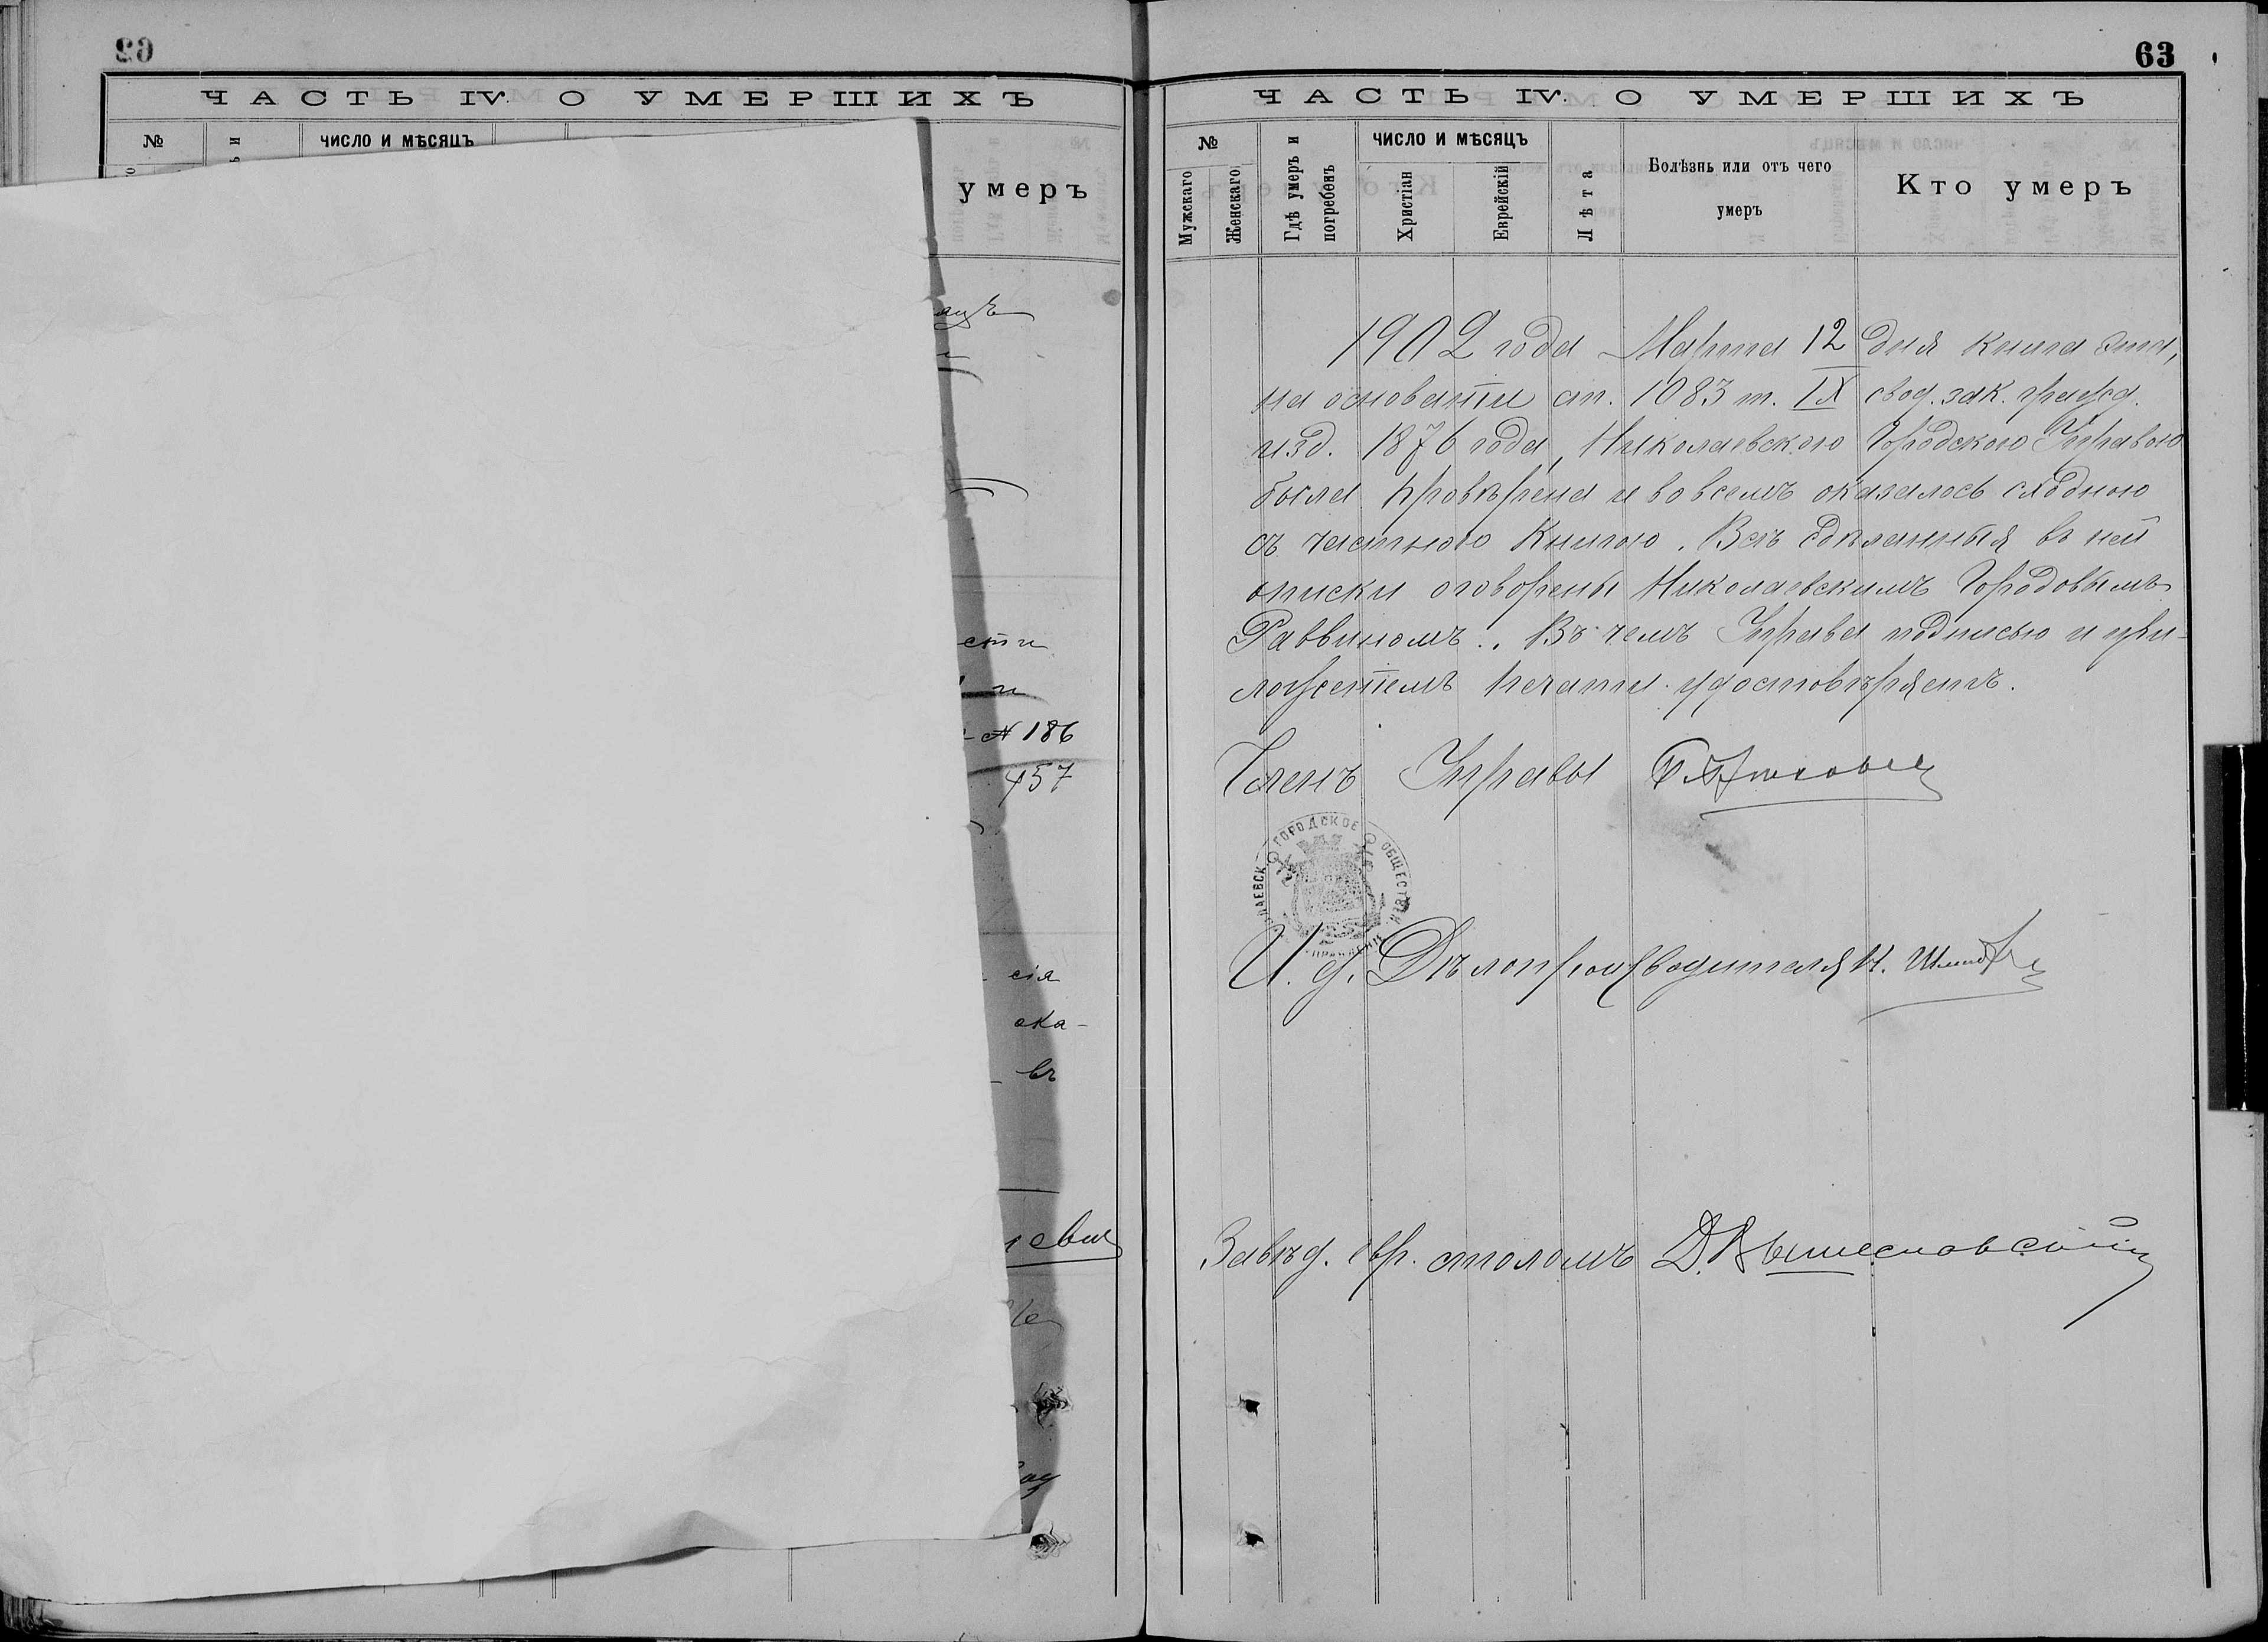 ЧАСТЬ IV. О УМЕРШИХЪ
№
ЧИСЛО И МѢСЯЦЪ
умеръ
№ 186
457
сія
ока-
въ
63
ЧАСТЬ IV. О УМЕРШИХЪ
№
Мужскаго
Женскаго
Гдѣ умеръ и погребенъ
ЧИСЛО И МѢСЯЦЪ
Христіан
Еврейскій
Лѣта
Болѣзнь или отъ чего умеръ
Кто умеръ
1902 года Марта 12 дня книга эта,
на основаніи ст. 1083 т. IX свод. зак. гражд.
изд. 1876 года, Николаевскою Городскою Управою
была провѣрена и во всемъ оказалось сходною
съ частною книгою. Всѣ сдѣланныя въ ней
описки оговорены Николаевскимъ Городовымъ
Раввиномъ. Въ чемъ Управа подписью и при-
ложеніемъ печати удостовѣряетъ.
Членъ Управы
ГОРОДСКОЕ ОБЩЕСТВЕН
И. д. Дѣлопроизводителя Н.
Завѣд. евр. столомъ Д.